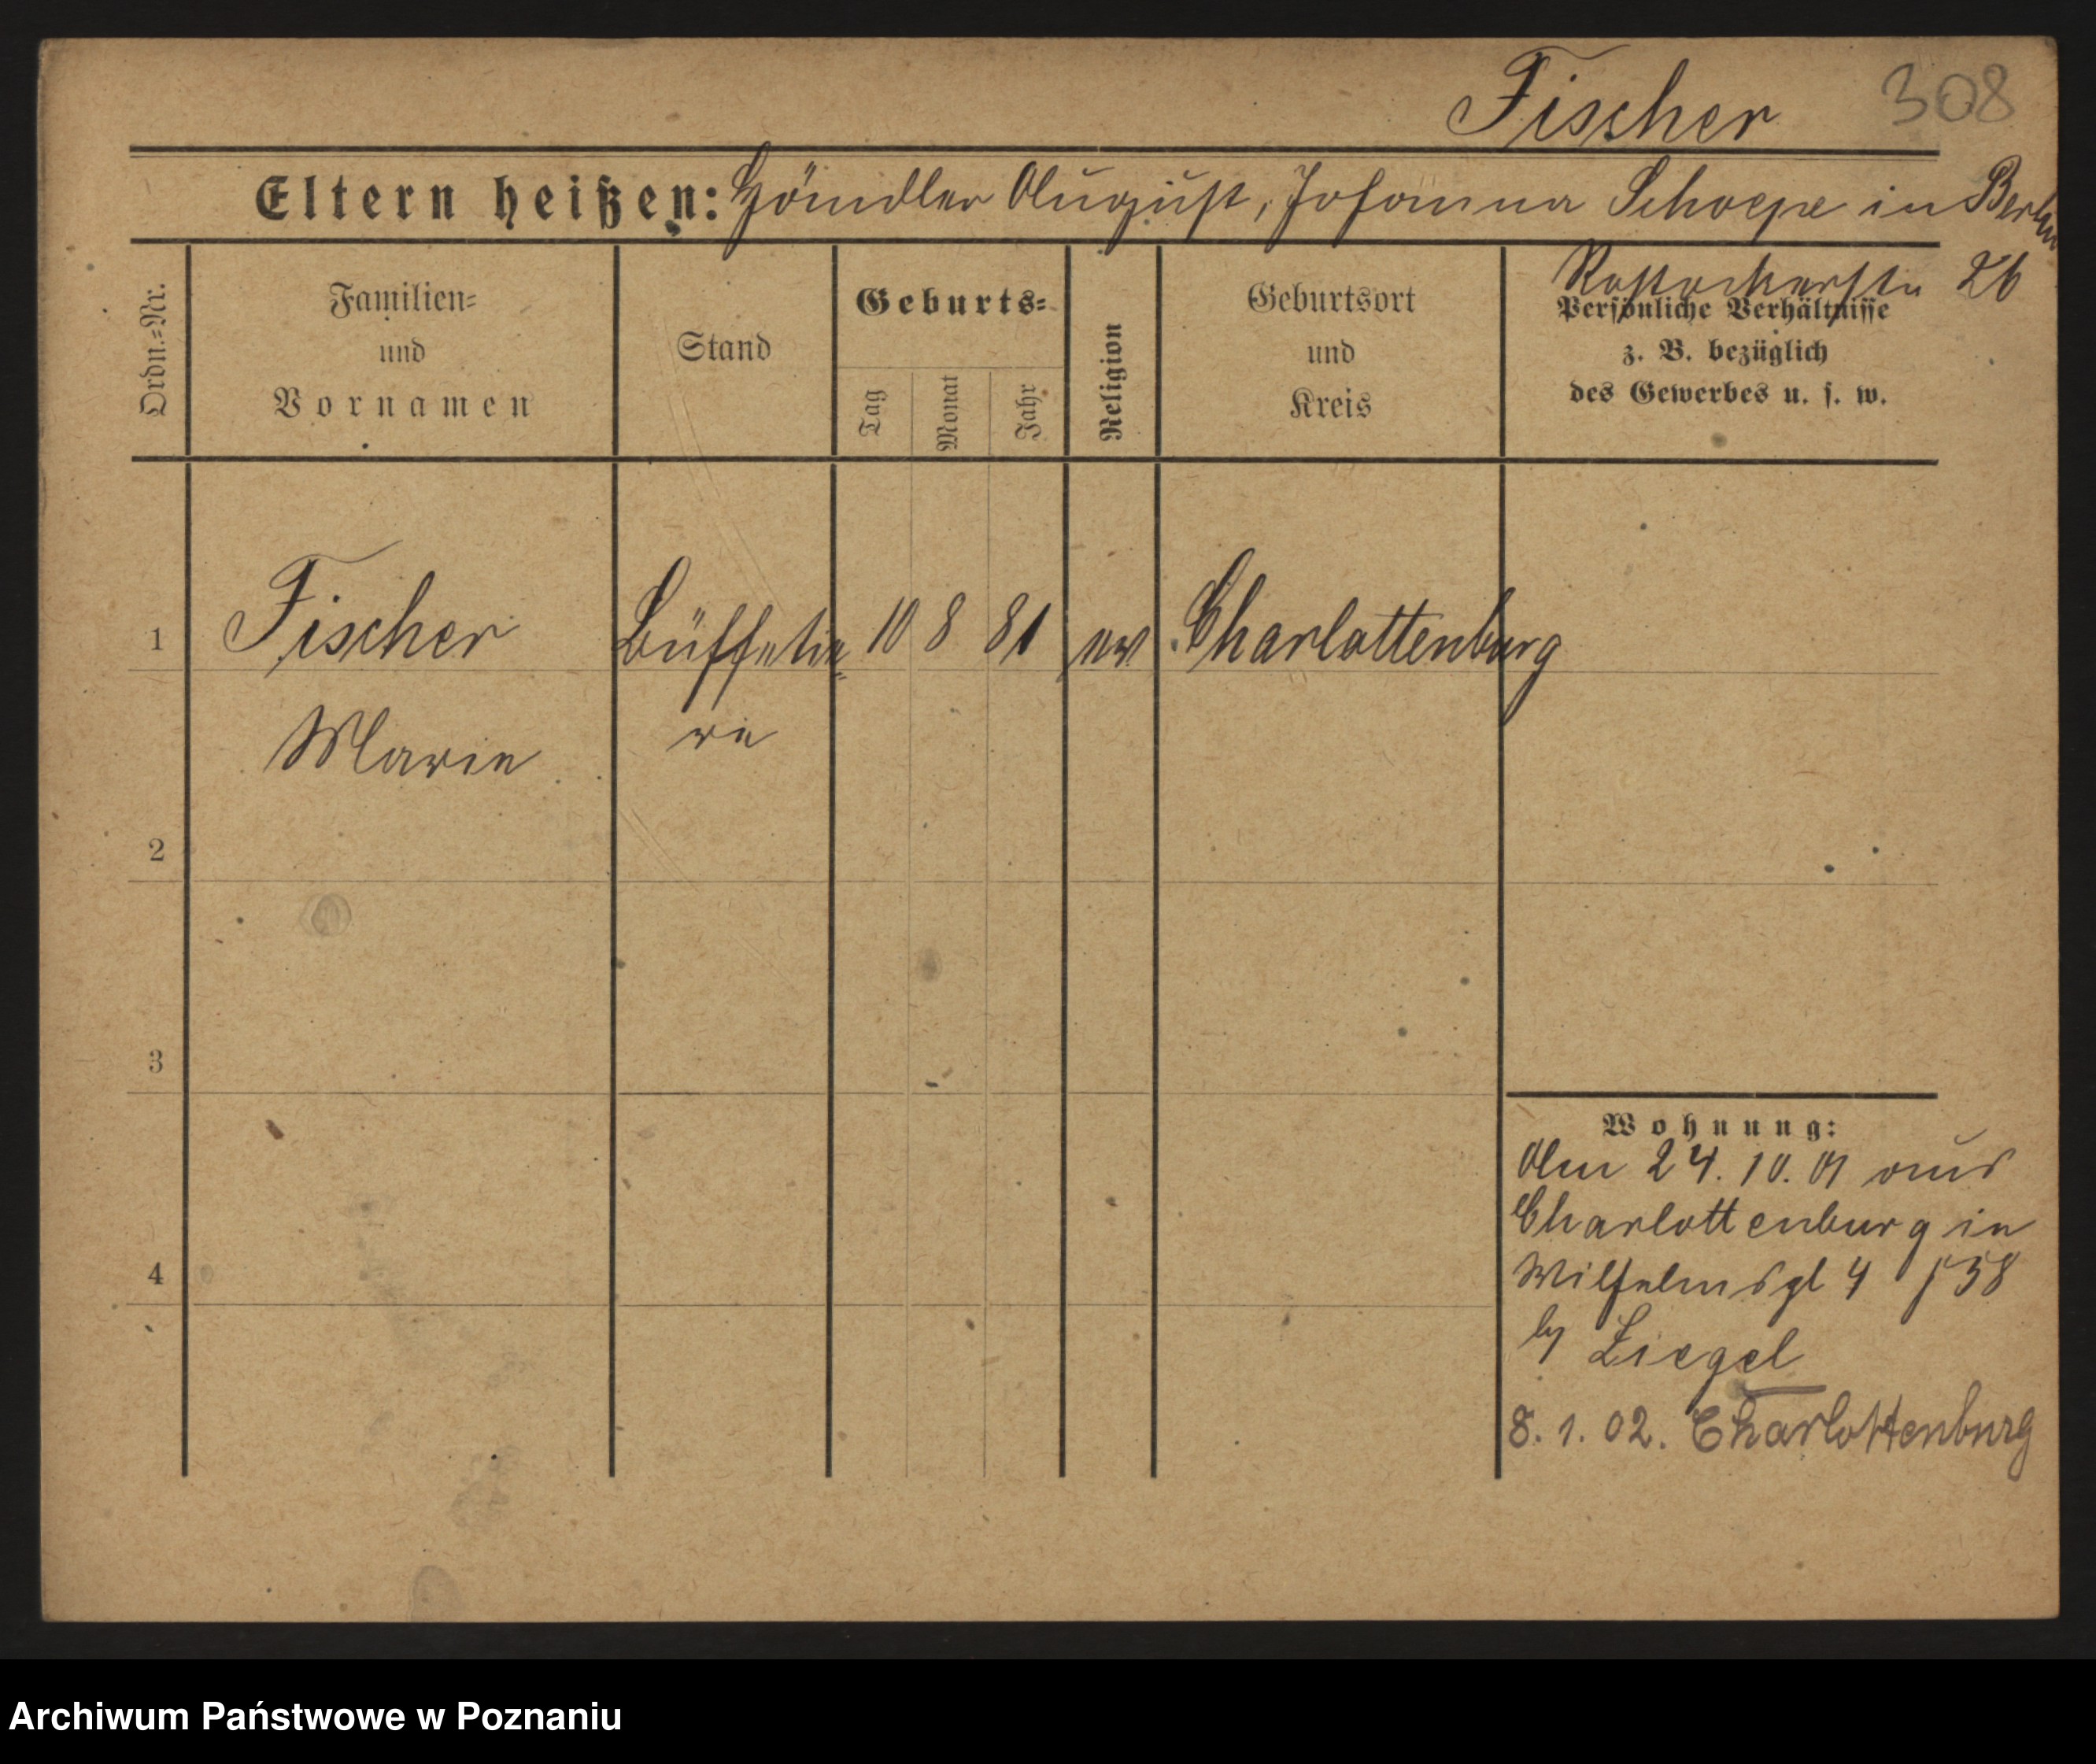 Fischer 308
Eltern heißen: Händler August, Johanna Schoepe in Berlin
Rostockerstr 26
Ordn.=Nr.
Familien=
und
Vornamen
Stand
Geburts=
Tag
Monat
Jahr
Religion
Geburtsort
und
Kreis
Persönliche Verhältnisse
z. B. bezüglich
des Gewerbes u. s. w.
1 Fischer Büffetie= 10 8 81 ev Charlottenburg
Marie re
2
3
4
Wohnung:
Am 24. 10. 01 aus
Charlottenburg in
Wilhelmspl 4 f 58
by Ziegel
8. 1. 02. Charlottenburg
Archiwum Państwowe w Poznaniu